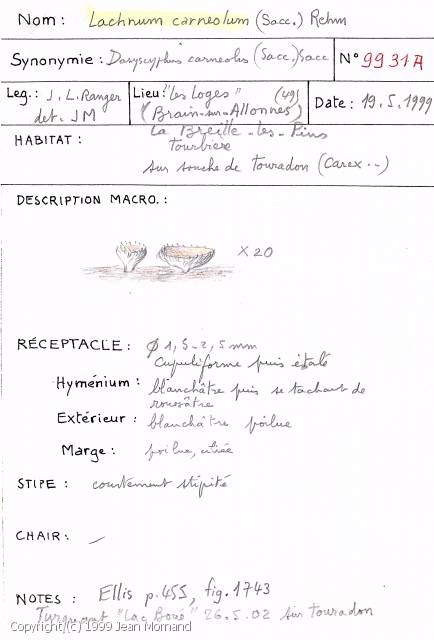 Nom : Lachnum carneolum (Sacc.) Rehm
Synonymie : Dasyscyphus carneolus (Sacc.) Sacc
N° 9931A
Leg. : J. L. Ranger
det. JM
Lieu : "Les Loges" (49)
(Brain-sur-Allonnes)
Date : 19.5.1999
HABITAT : La Breille-les-Pins
tourbière
sur souche de touradon (Carex ..)
DESCRIPTION MACRO. :
X 20
RÉCEPTACLE : Ø 1,5-2,5 mm
Cupuliforme puis étalé
Hyménium : blanchâtre puis se tachant de
rousâtre
Extérieur : blanchâtre poilue
Marge : poilue, ciliée
STIPE : courtement stipité
CHAIR : _
NOTES : Ellis p. 455, fig. 1743
Turquant "Lac Boué" 26.5.02 sur touradon
Copyright (c) 1999 Jean Mornand